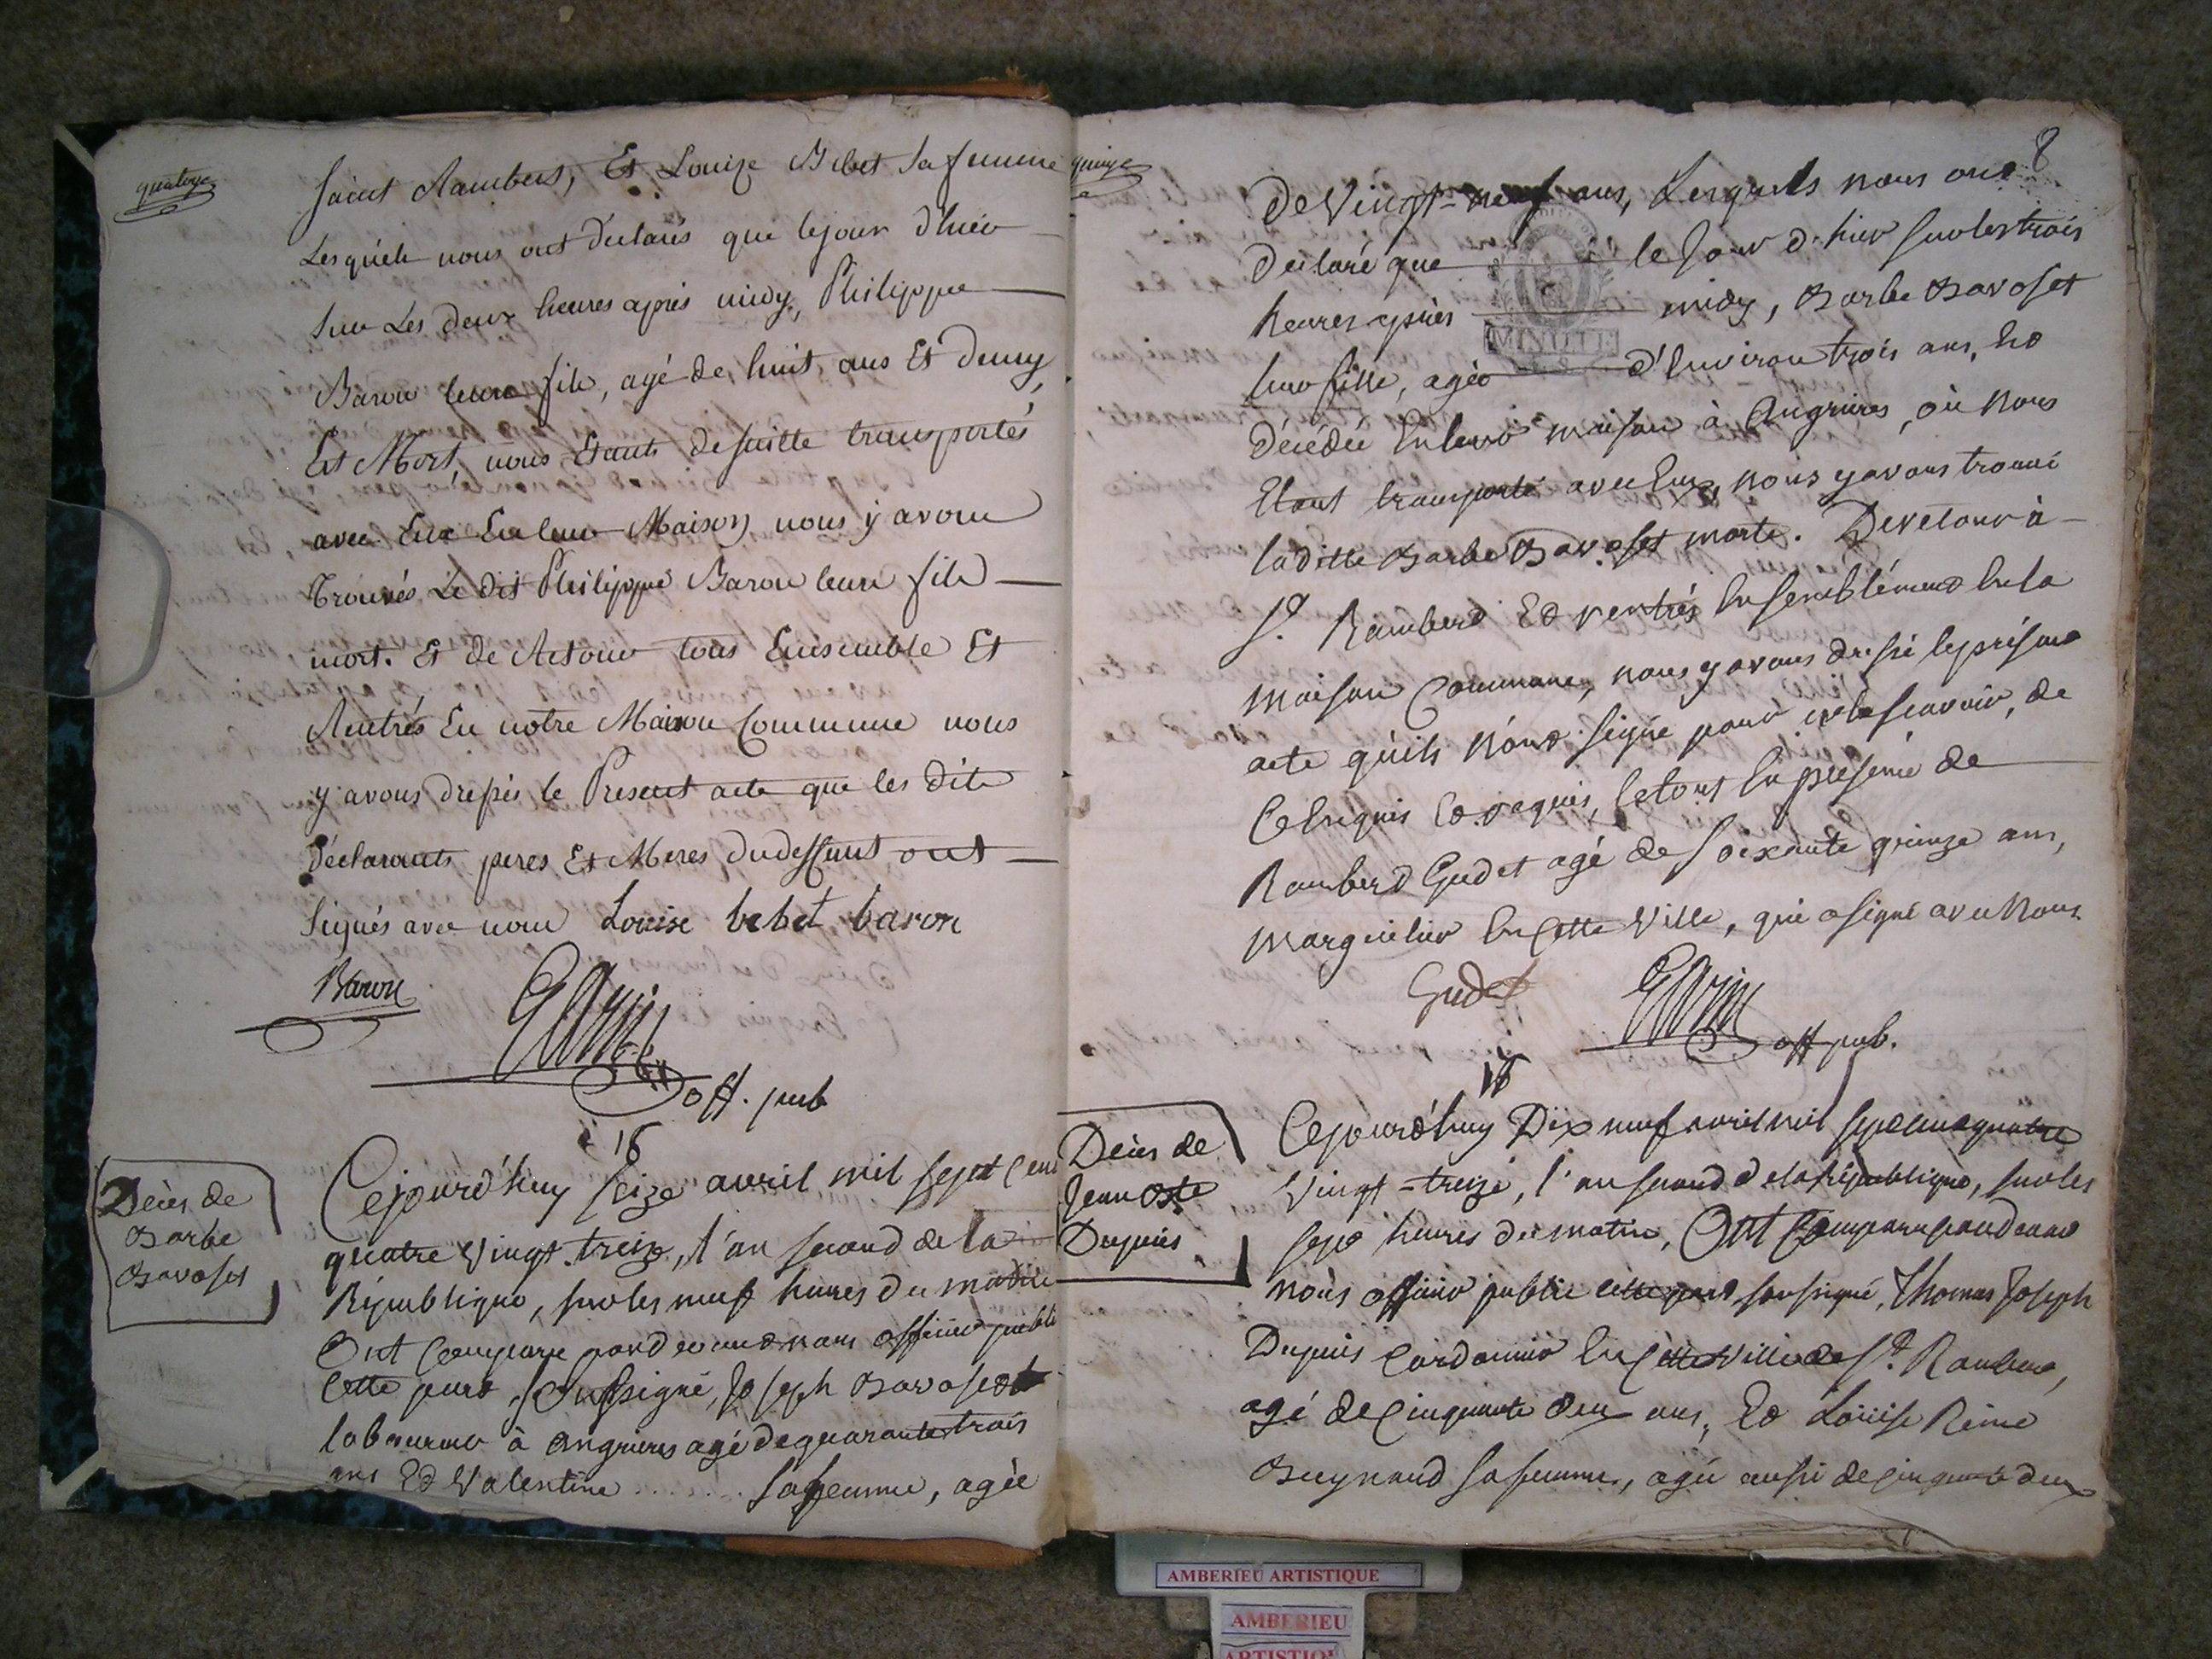 quatorze
Saint Rambert, Et Louize Bebet sa femme
Lesquels nous ont declarés que le jour d'hier
sur Les deux heures après midy, Philippe
Baron leur fils, agé de huit ans Et demy
Est Mort, nous Etants de suitte transportés
avec Eux En leur Maison nous y avons
Trouvés Le dit Philippe Baron leur fils
mort. Et de Retour tous Ensemble Et
Rentrés En notre Maison Commune nous
y avons dressés le Present acte que les dits
déclarants peres Et Meres du deffunt ont
signés avec nous Louise bebet baron
Baron
off. pub
16
Décès de
Barbe
Bavoset
Cejourd'huy seize avril mil sept cent
quatre vingt treize, l'an second de la
République, sur les neuf heures du matin
Ont comparu pardevant nous officier public
Cette part, soussigné, Joseph Bavoset
laboureur à Angrieres agé de quarante trois
ans Et Valentine ........ sa femme, agée
quinze
8
de Vingt-neuf ans, Lesquels nous ont
déclaré que le Jour d'hier sur les trois
heures après midy, Barbe Bavoset
leur fille, agée d'Environ trois ans, Est
décédée En leur maison à Angrieres, où nous
Etant transporté avec Eux, nous y avons trouvé
laditte Barbe Bavoset morte. De retour à
St. Rambert Et rentrés Ensemblément En la
maison Commune, nous y avons dressé le présent
acte qu'ils n'ont signé pour ne le scavoir, de
Ce Enquis Et requis, le tout En présence de
Rambert Gudet agé de soixante quinze ans,
marguilier En Cette Ville, qui a signé avec Nous.
MINUTE
Gudet
off pub.
Décès de
Jean Bte
Dupuis
Cejourd'huy Dix neuf avril mil sept cent quatre
Vingt-treize, l'an second de la République, sur les
sept heures du matin, Ont Comparu pardevant
nous officier public cette part, soussigné, Thomas Joseph
Dupuis Cordonnier En Cette Ville de St. Rambert,
agé de Cinquante deux ans, Et Loüise Reine
Buynand sa femme, agée aussi de cinquante deux
AMBERIEU ARTISTIQUE
AMBERIEU
ARTISTIQUE